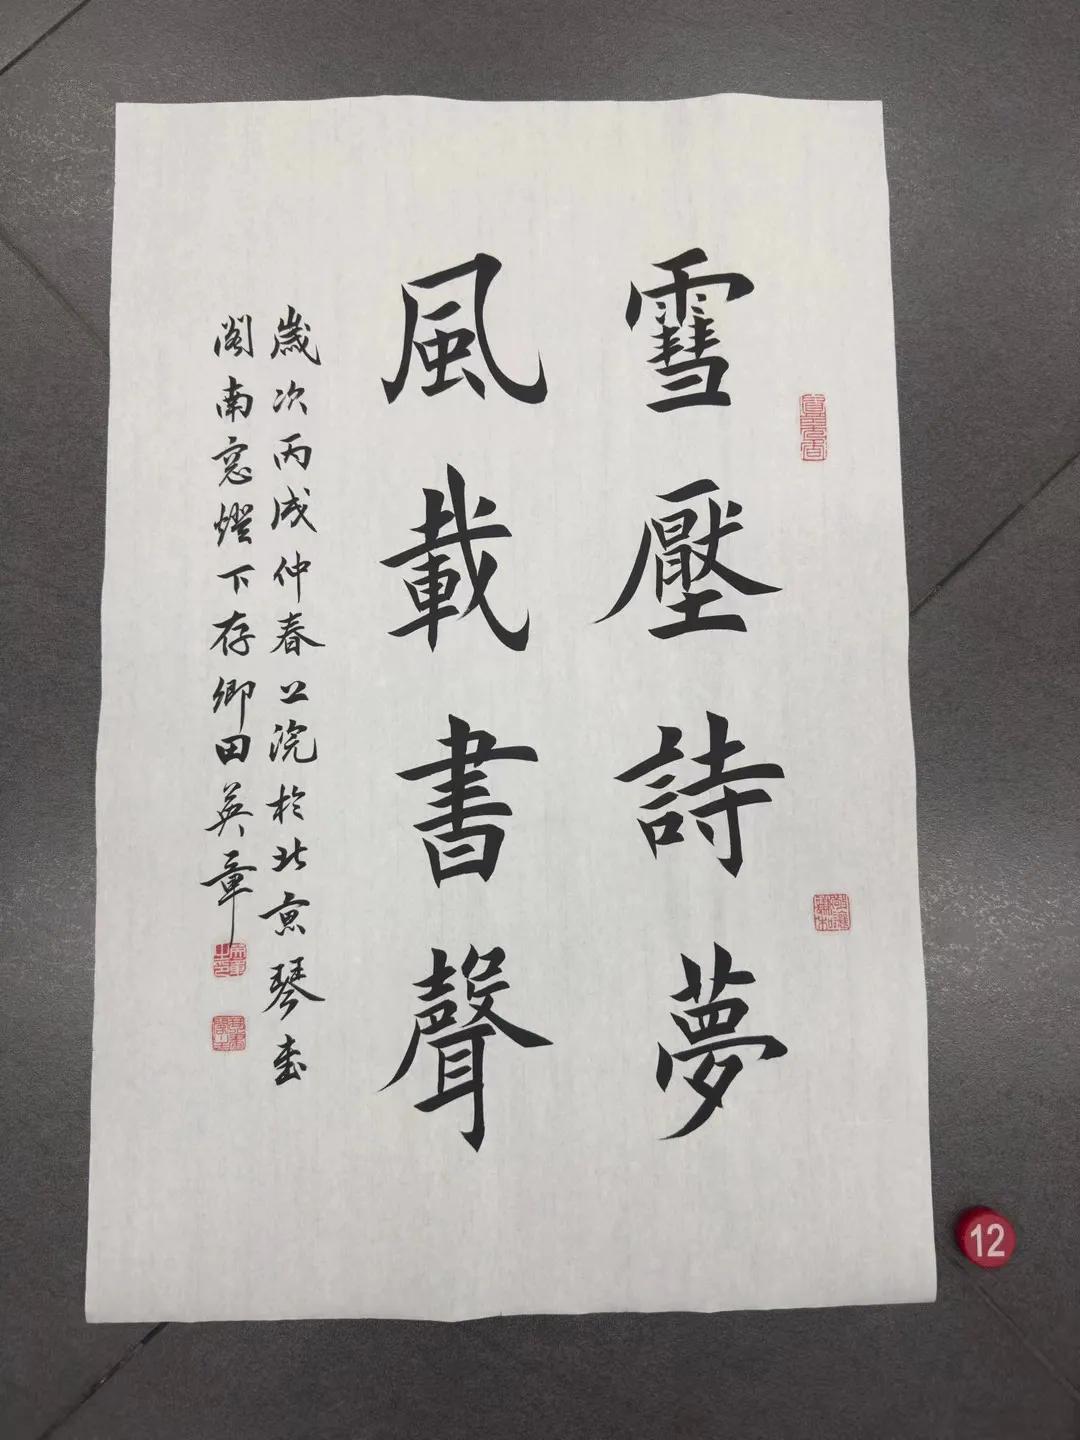 雪壓詩夢
風載書聲
歲次丙戌仲春上浣於北京琴書
閣南窓燈下存卿田英章
12